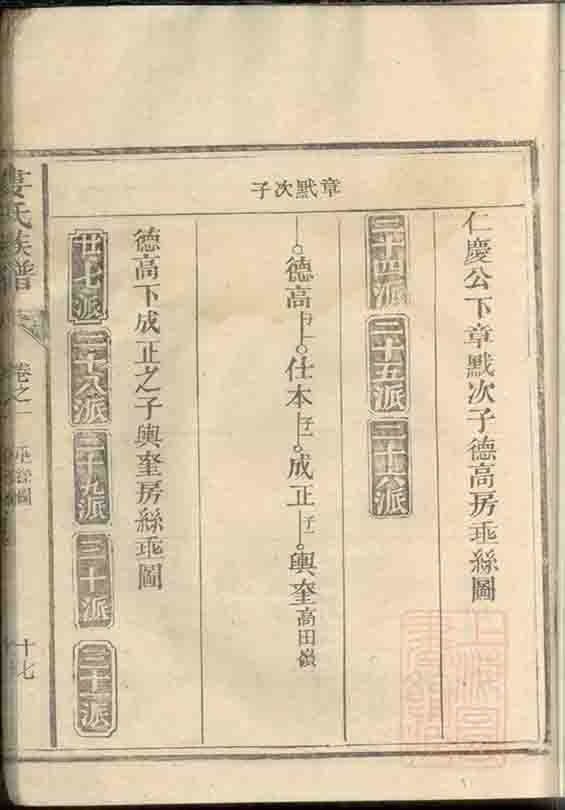 章黙次子
仁慶公下章黙次子德高房埀絲圖
二十四派
二十五派
二十六派
德高子一仕本子一成正子一興奎高田嶺
德高下成正之子興奎房絲埀圖
廿七派
二十八派
二十九派
三十派
三十一派
氏族譜
卷之一
十七